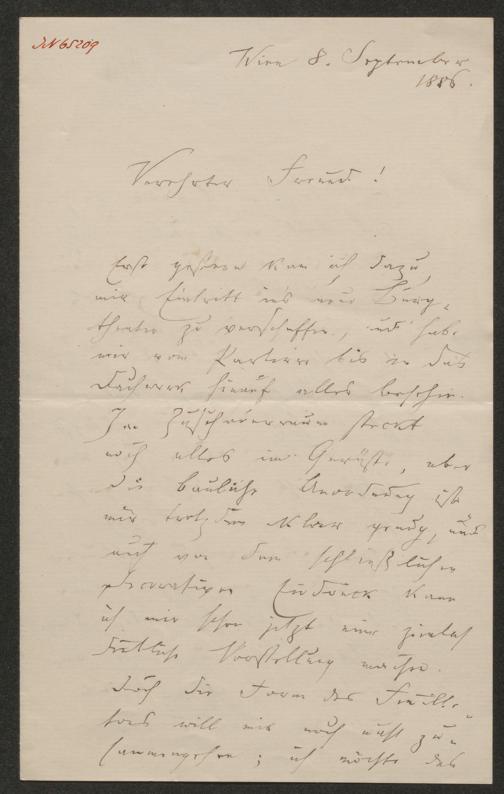 JN 65209
Wien 8. September
1886.
Verehrter Freund!
Erst gestern kam ich dazu,
mir Eintritt ins neue Burg-
theater zu verschaffen, und habe
mir vom Parterre bis in das
Dachwerk hinauf alles besehen.
Im Zuschauerraum steckt
noch alles im Gerüste, aber
die bauliche Anordnung ist
mir trotzdem klar genug, und
auch von dem schließlichen
decorativen Eindruck kann
ich mir schon jetzt eine ziemlich
deutliche Vorstellung machen.
Doch die Form des Feuille-
tons will mir noch nicht zu-
sammengehen; ich möchte das